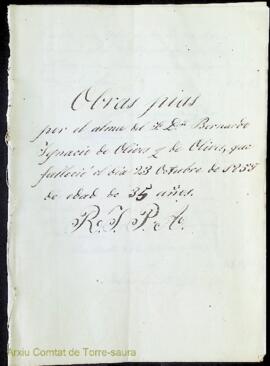 Obras pias
por el alma del Sr. Dn. Bernardo
Ignacio de Olives y de Olives, que
falleció el dia 23 Octubre de 1858
de edad de 35 años.
R. I. P. A.
Arxiu Comtat de Torre-saura